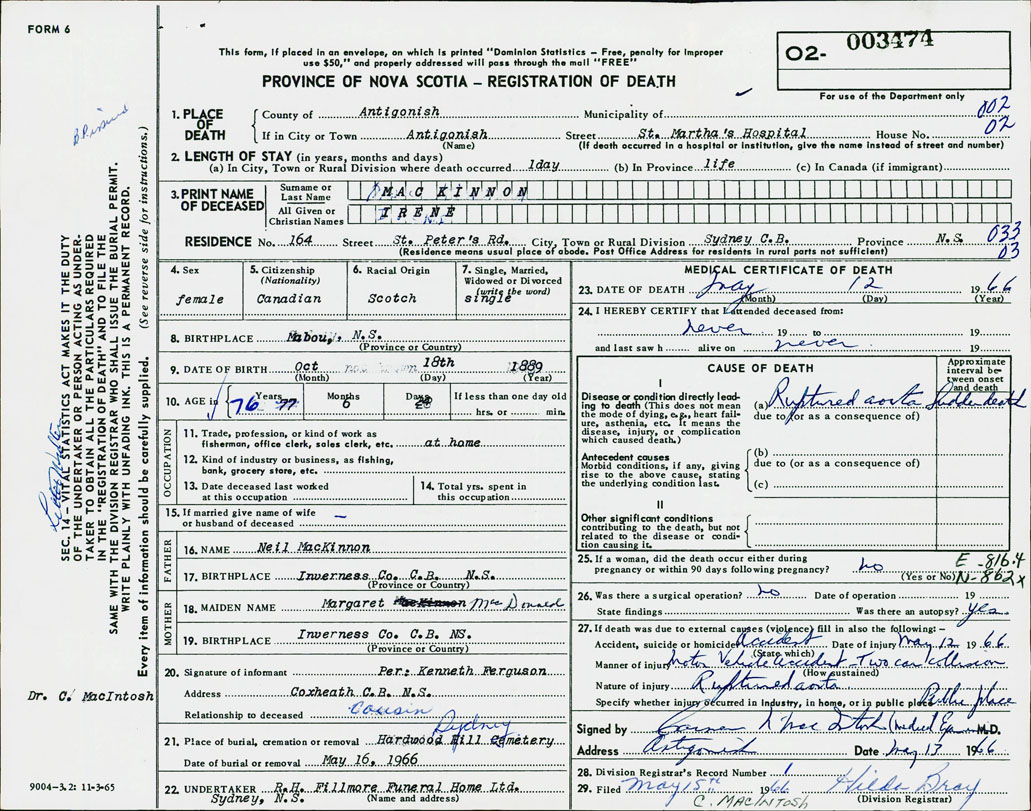 FORM 6
02- 003474
For use of the Department only
This form, if placed in an envelope, on which is printed "Dominion Statistics – Free, penalty for improper
use $50," and properly addressed will pass through the mail "FREE"
PROVINCE OF NOVA SCOTIA – REGISTRATION OF DEATH
1. PLACE OF DEATH County of Antigonish Municipality of 002
If in City or Town Antigonish Street St. Martha's Hospital House No. 02
(Name) (If death occurred in a hospital or institution, give the name instead of street and number)
2. LENGTH OF STAY (in years, months and days)
(a) In City, Town or Rural Division where death occurred 1day (b) In Province life (c) In Canada (if immigrant)
3. PRINT NAME OF DECEASED Surname or Last Name MAC KINNON
All Given or Christian Names IRENE
RESIDENCE No. 164 Street St. Peter's Rd. City, Town or Rural Division Sydney C.B. Province N.S. 033
(Residence means usual place of abode. Post Office Address for residents in rural parts not sufficient) 03
4. Sex female
5. Citizenship (Nationality) Canadian
6. Racial Origin Scotch
7. Single, Married, Widowed or Divorced (write the word) single
8. BIRTHPLACE Mabou, N.S.
(Province or Country)
9. DATE OF BIRTH Oct 18th 1889
(Month) (Day) (Year)
10. AGE in Years 76 77 Months 0 Days 28 If less than one day old
hrs. or min.
OCCUPATION
11. Trade, profession, or kind of work as
fisherman, office clerk, sales clerk, etc. at home
12. Kind of industry or business, as fishing,
bank, grocery store, etc.
13. Date deceased last worked
at this occupation
14. Total yrs. spent in
this occupation
15. If married give name of wife
or husband of deceased –
FATHER
16. NAME Neil MacKinnon
17. BIRTHPLACE Inverness Co. C.B. N.S.
(Province or Country)
MOTHER
18. MAIDEN NAME Margaret MacKinnon Mac Donald
19. BIRTHPLACE Inverness Co. C.B. NS.
(Province or Country)
20. Signature of informant Per: Kenneth Ferguson
Address Coxheath C.B. N.S.
Relationship to deceased cousin
Sydney
21. Place of burial, cremation or removal Hardwood Hill Cemetery
Date of burial or removal May 16, 1966
22. UNDERTAKER R.H. Fillmore Funeral Home Ltd.
Sydney, N.S. (Name and address)
MEDICAL CERTIFICATE OF DEATH
23. DATE OF DEATH May 12 1966
(Month) (Day) (Year)
24. I HEREBY CERTIFY that I attended deceased from:
never 19 to 19
and last saw h alive on never 19
CAUSE OF DEATH
Approximate interval between onset and death
I
Disease or condition directly leading to death (This does not mean the mode of dying, e.g., heart failure, asthenia, etc. It means the disease, injury, or complication which caused death.)
(a) Ruptured aorta Sudden death
due to (or as a consequence of)
Antecedent causes
Morbid conditions, if any, giving rise to the above cause, stating the underlying condition last.
(b)
due to (or as a consequence of)
(c)
II
Other significant conditions
contributing to the death, but not related to the disease or condition causing it.
25. If a woman, did the death occur either during
pregnancy or within 90 days following pregnancy? no (Yes or No)
E -816.4
N-862x
26. Was there a surgical operation? no Date of operation 19
State findings Was there an autopsy? yes
27. If death was due to external causes (violence) fill in also the following: –
Accident, suicide or homicide Accident Date of injury May 12 1966
(State which)
Manner of injury Motor Vehicle accident - Two car collision
(How sustained)
Nature of injury Ruptured aorta
Specify whether injury occurred in industry, in home, or in public place Public place
Signed by (Medical Ex) M.D.
Address Antigonish Date May 13 1966
28. Division Registrar's Record Number 1
29. Filed May 15th 1966 Hilda Bray
C. MACINTOSH (Division Registrar)
SEC. 14 – VITAL STATISTICS ACT MAKES IT THE DUTY
OF THE UNDERTAKER OR PERSON ACTING AS UNDER-
TAKER TO OBTAIN ALL THE PARTICULARS REQUIRED
IN THE "REGISTRATION OF DEATH" AND TO FILE THE
SAME WITH THE DIVISION REGISTRAR WHO SHALL ISSUE THE BURIAL PERMIT.
WRITE PLAINLY WITH UNFADING INK. THIS IS A PERMANENT RECORD.
Every item of information should be carefully supplied. (See reverse side for instructions.)
Dr. C. MacIntosh
9004-3.2: 11-3-65